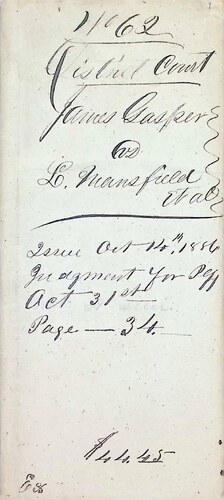 No 62
District Court
James Gasper
vs
L. Mansfield
et al
Issue Oct 20th, 1886
Judgment for Plff
Oct 31st
Page — 34.
$44.45